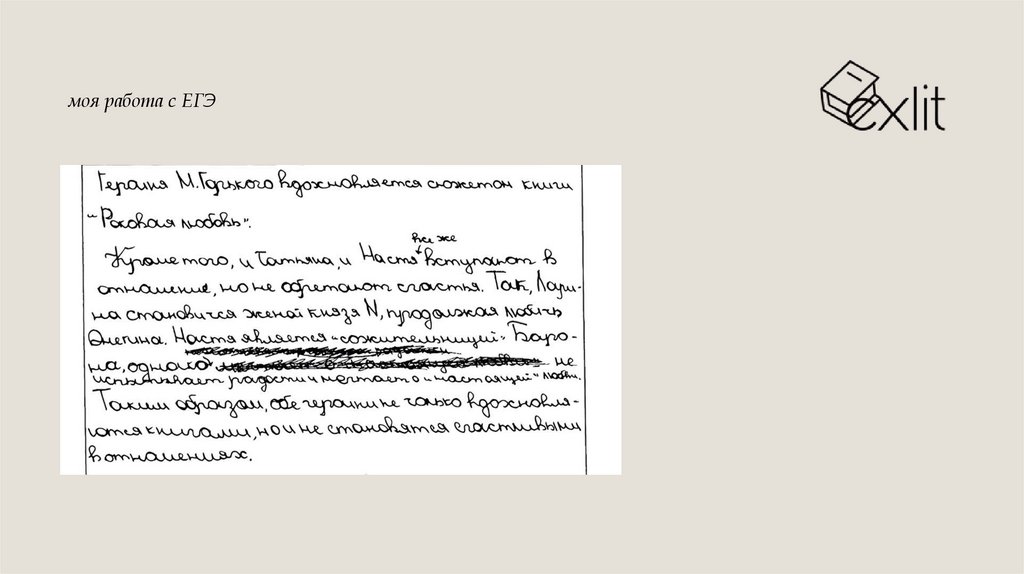 моя работа с ЕГЭ
exlit
Героиня М.Горького вдохновляется сюжетом книги
"Роковая любовь".
все же
Кроме того, и Татьяна, и Настя вступают в
отношение, но не обретают счастья. Так, Лари-
на становится женой князя N, продолжая любить
Онегина. Настя является "сожительницей" Баро-
на, однако не
испытывает радости и мечтает о "настоящей" любви.
Таким образом, обе героини не только вдохновля-
ются книгами, но и не становятся счастливыми
в отношениях.